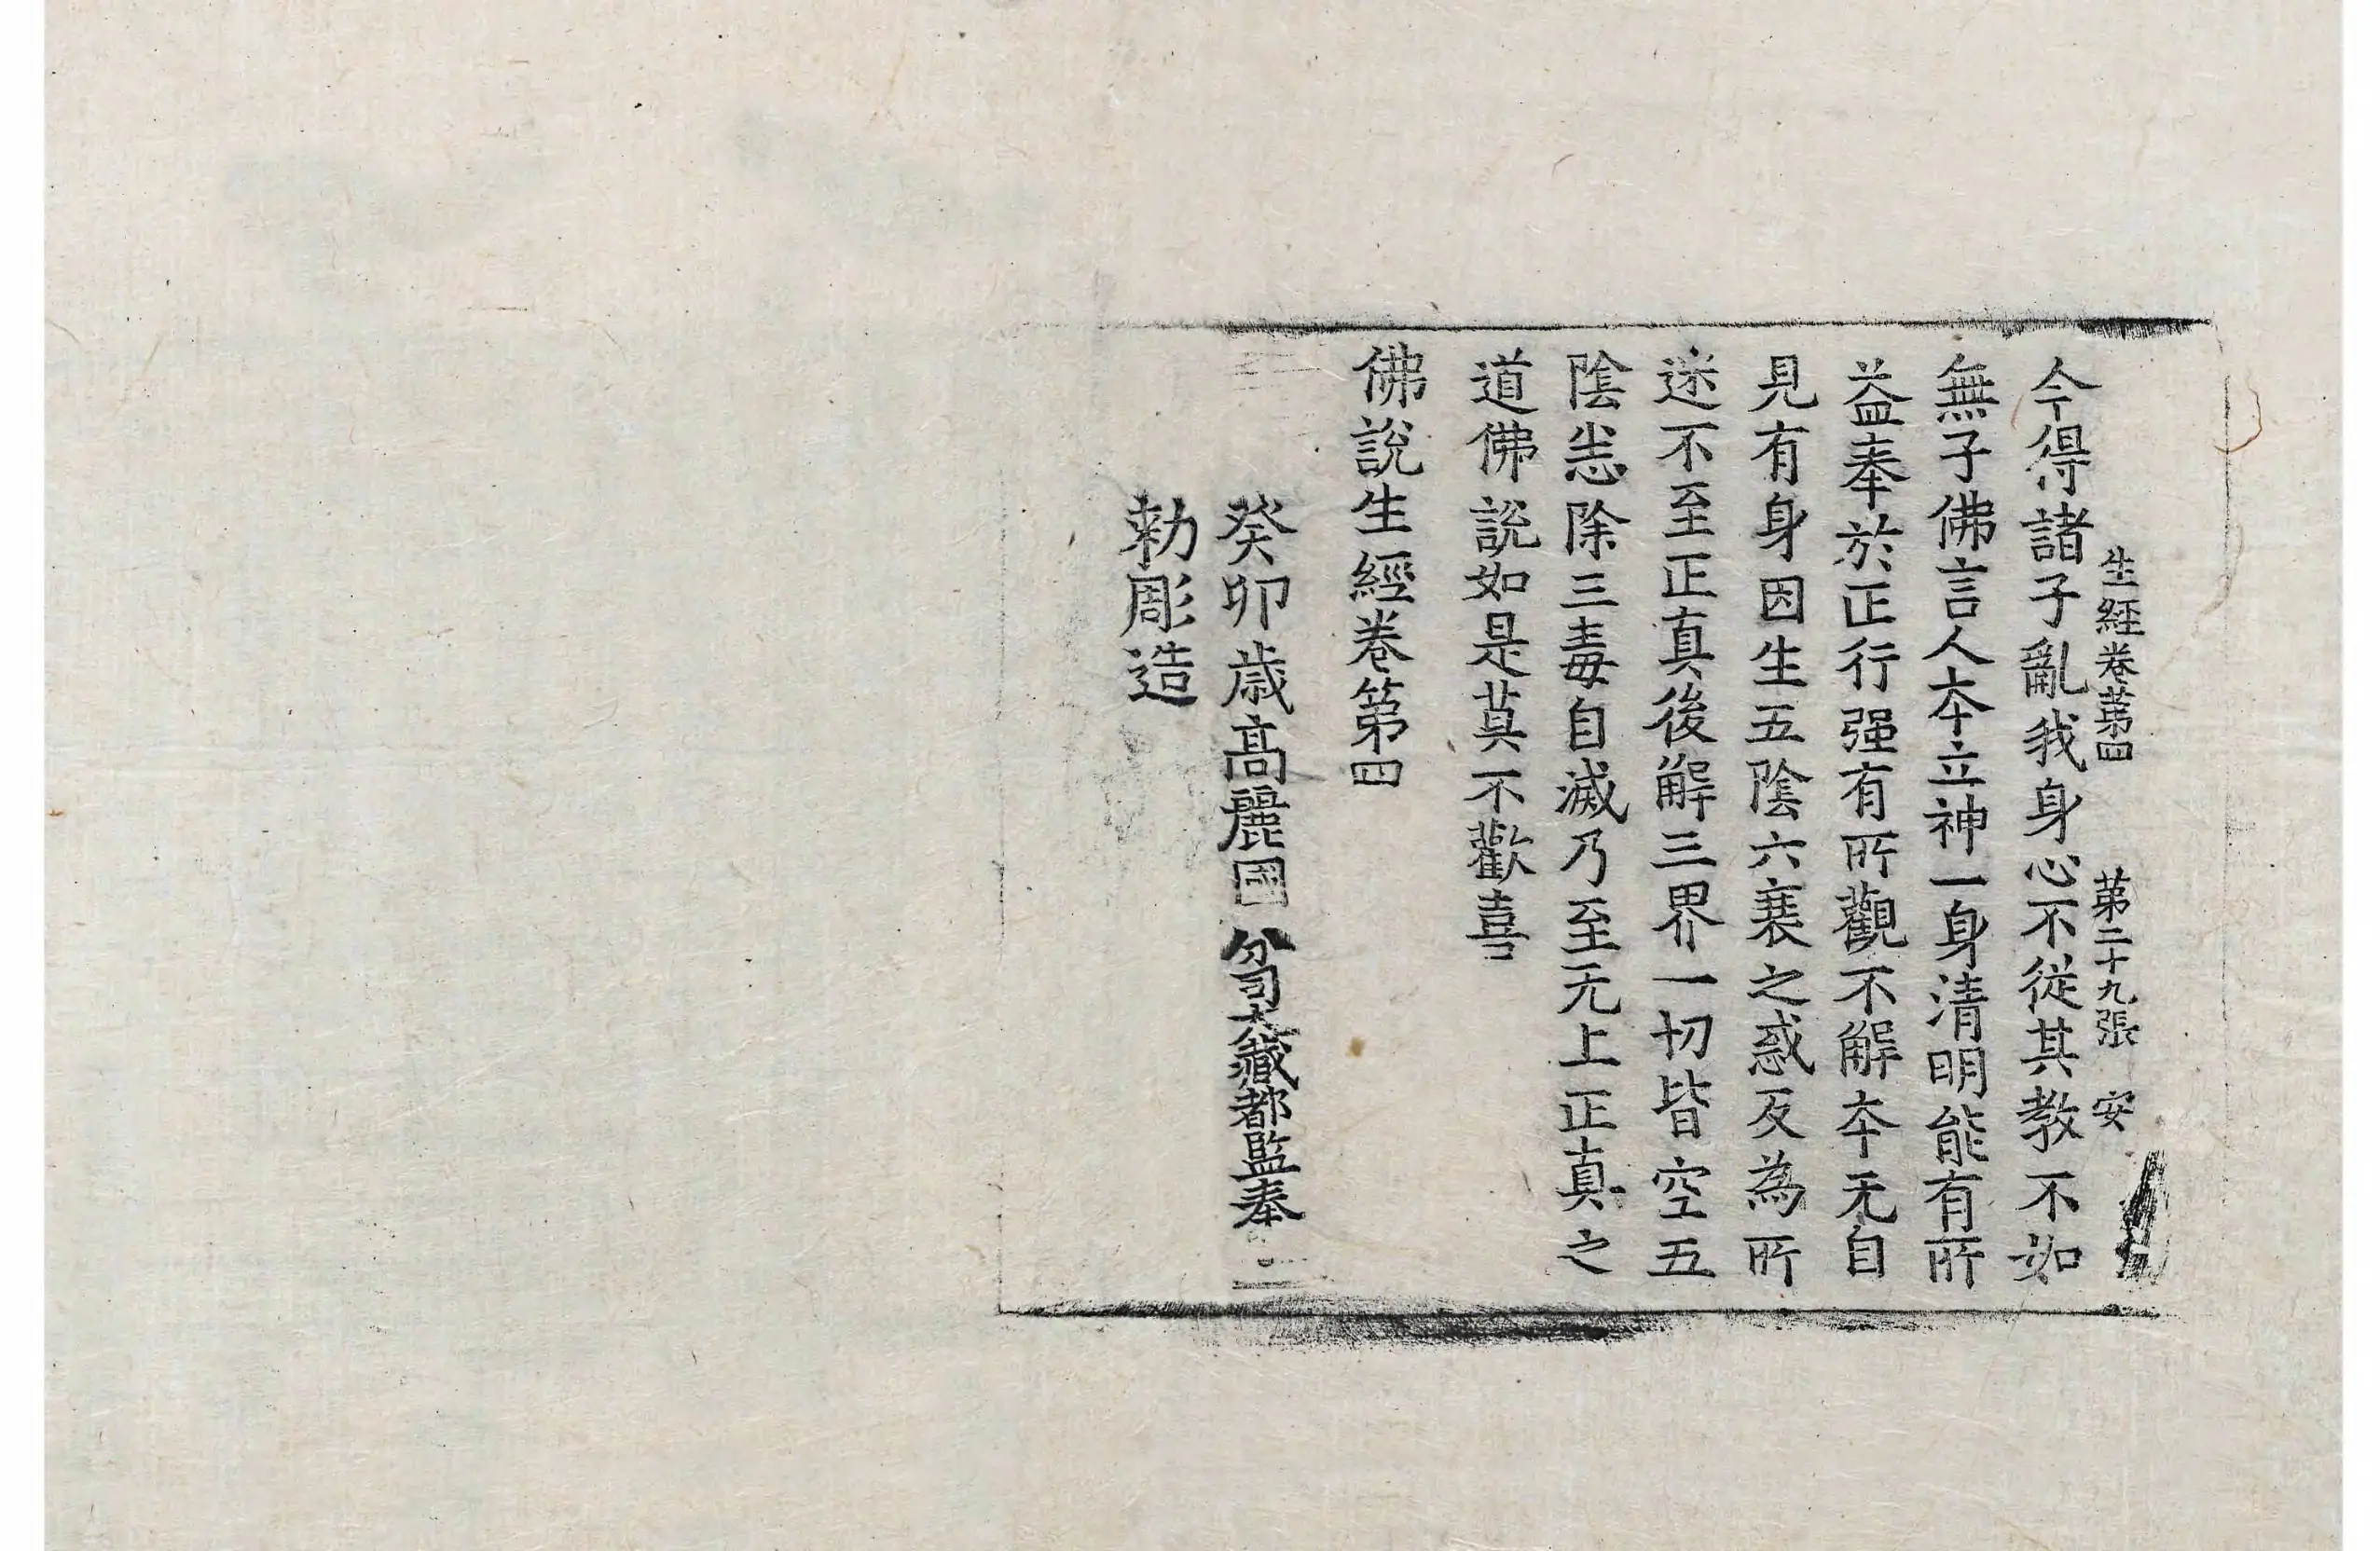 生經卷苐四　苐二十九張　安
今得諸子亂我身心不從其教不如
無子佛言人夲立神一身清明能有所
益奉於正行强有所觀不解夲无自
見有身因生五陰六衰之惑反為所
迷不至正真後解三界一切皆空五
陰恙除三毒自滅乃至无上正真之
道佛說如是莫不歡喜
佛說生經卷第四
癸卯歳高麗國分司大藏都監奉
勑彫造